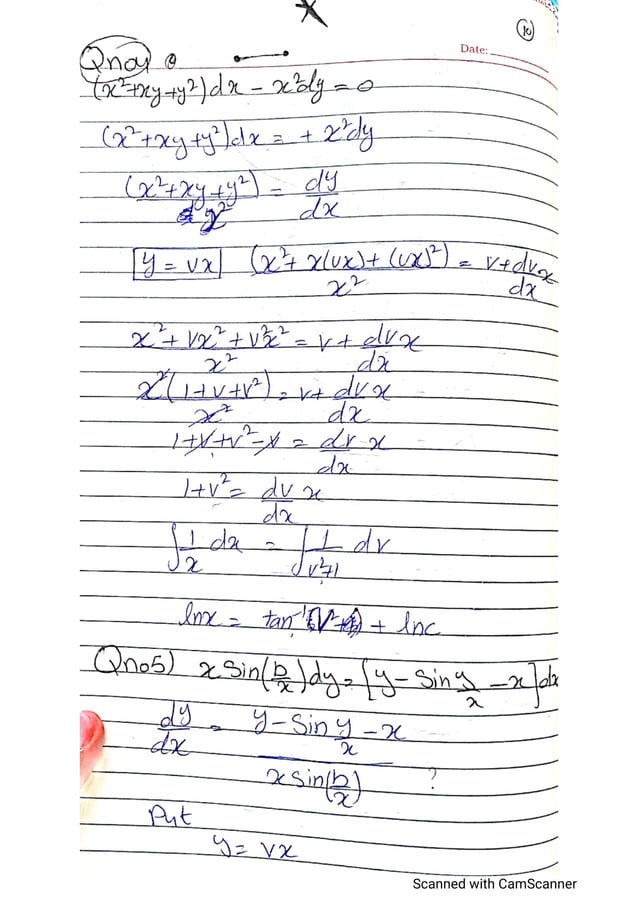 10
Date:
Qno4
(x²+xy+y²)dx - x²dy = 0
(x²+xy+y²)dx = + x²dy
(x²+xy+y²)/x² = dy/dx
y = vx (x²+ x(vx) + (vx)²)/x² = v + dv/dx x
(x² + vx² + v²x²)/x² = v + dv/dx x
x²(1+v+v²)/x² = v + dv/dx x
1+v+v²-v = dv/dx x
1+v² = dv/dx x
∫1/x dx = ∫1/(v²+1) dv
lnx = tan⁻¹ + lnc
Qno5) x sin(b/x)dy = [y - sin y/x - x]dx
dy/dx = (y - sin y/x - x)/(x sin(b/x)) ?
Put
y = vx
Scanned with CamScanner